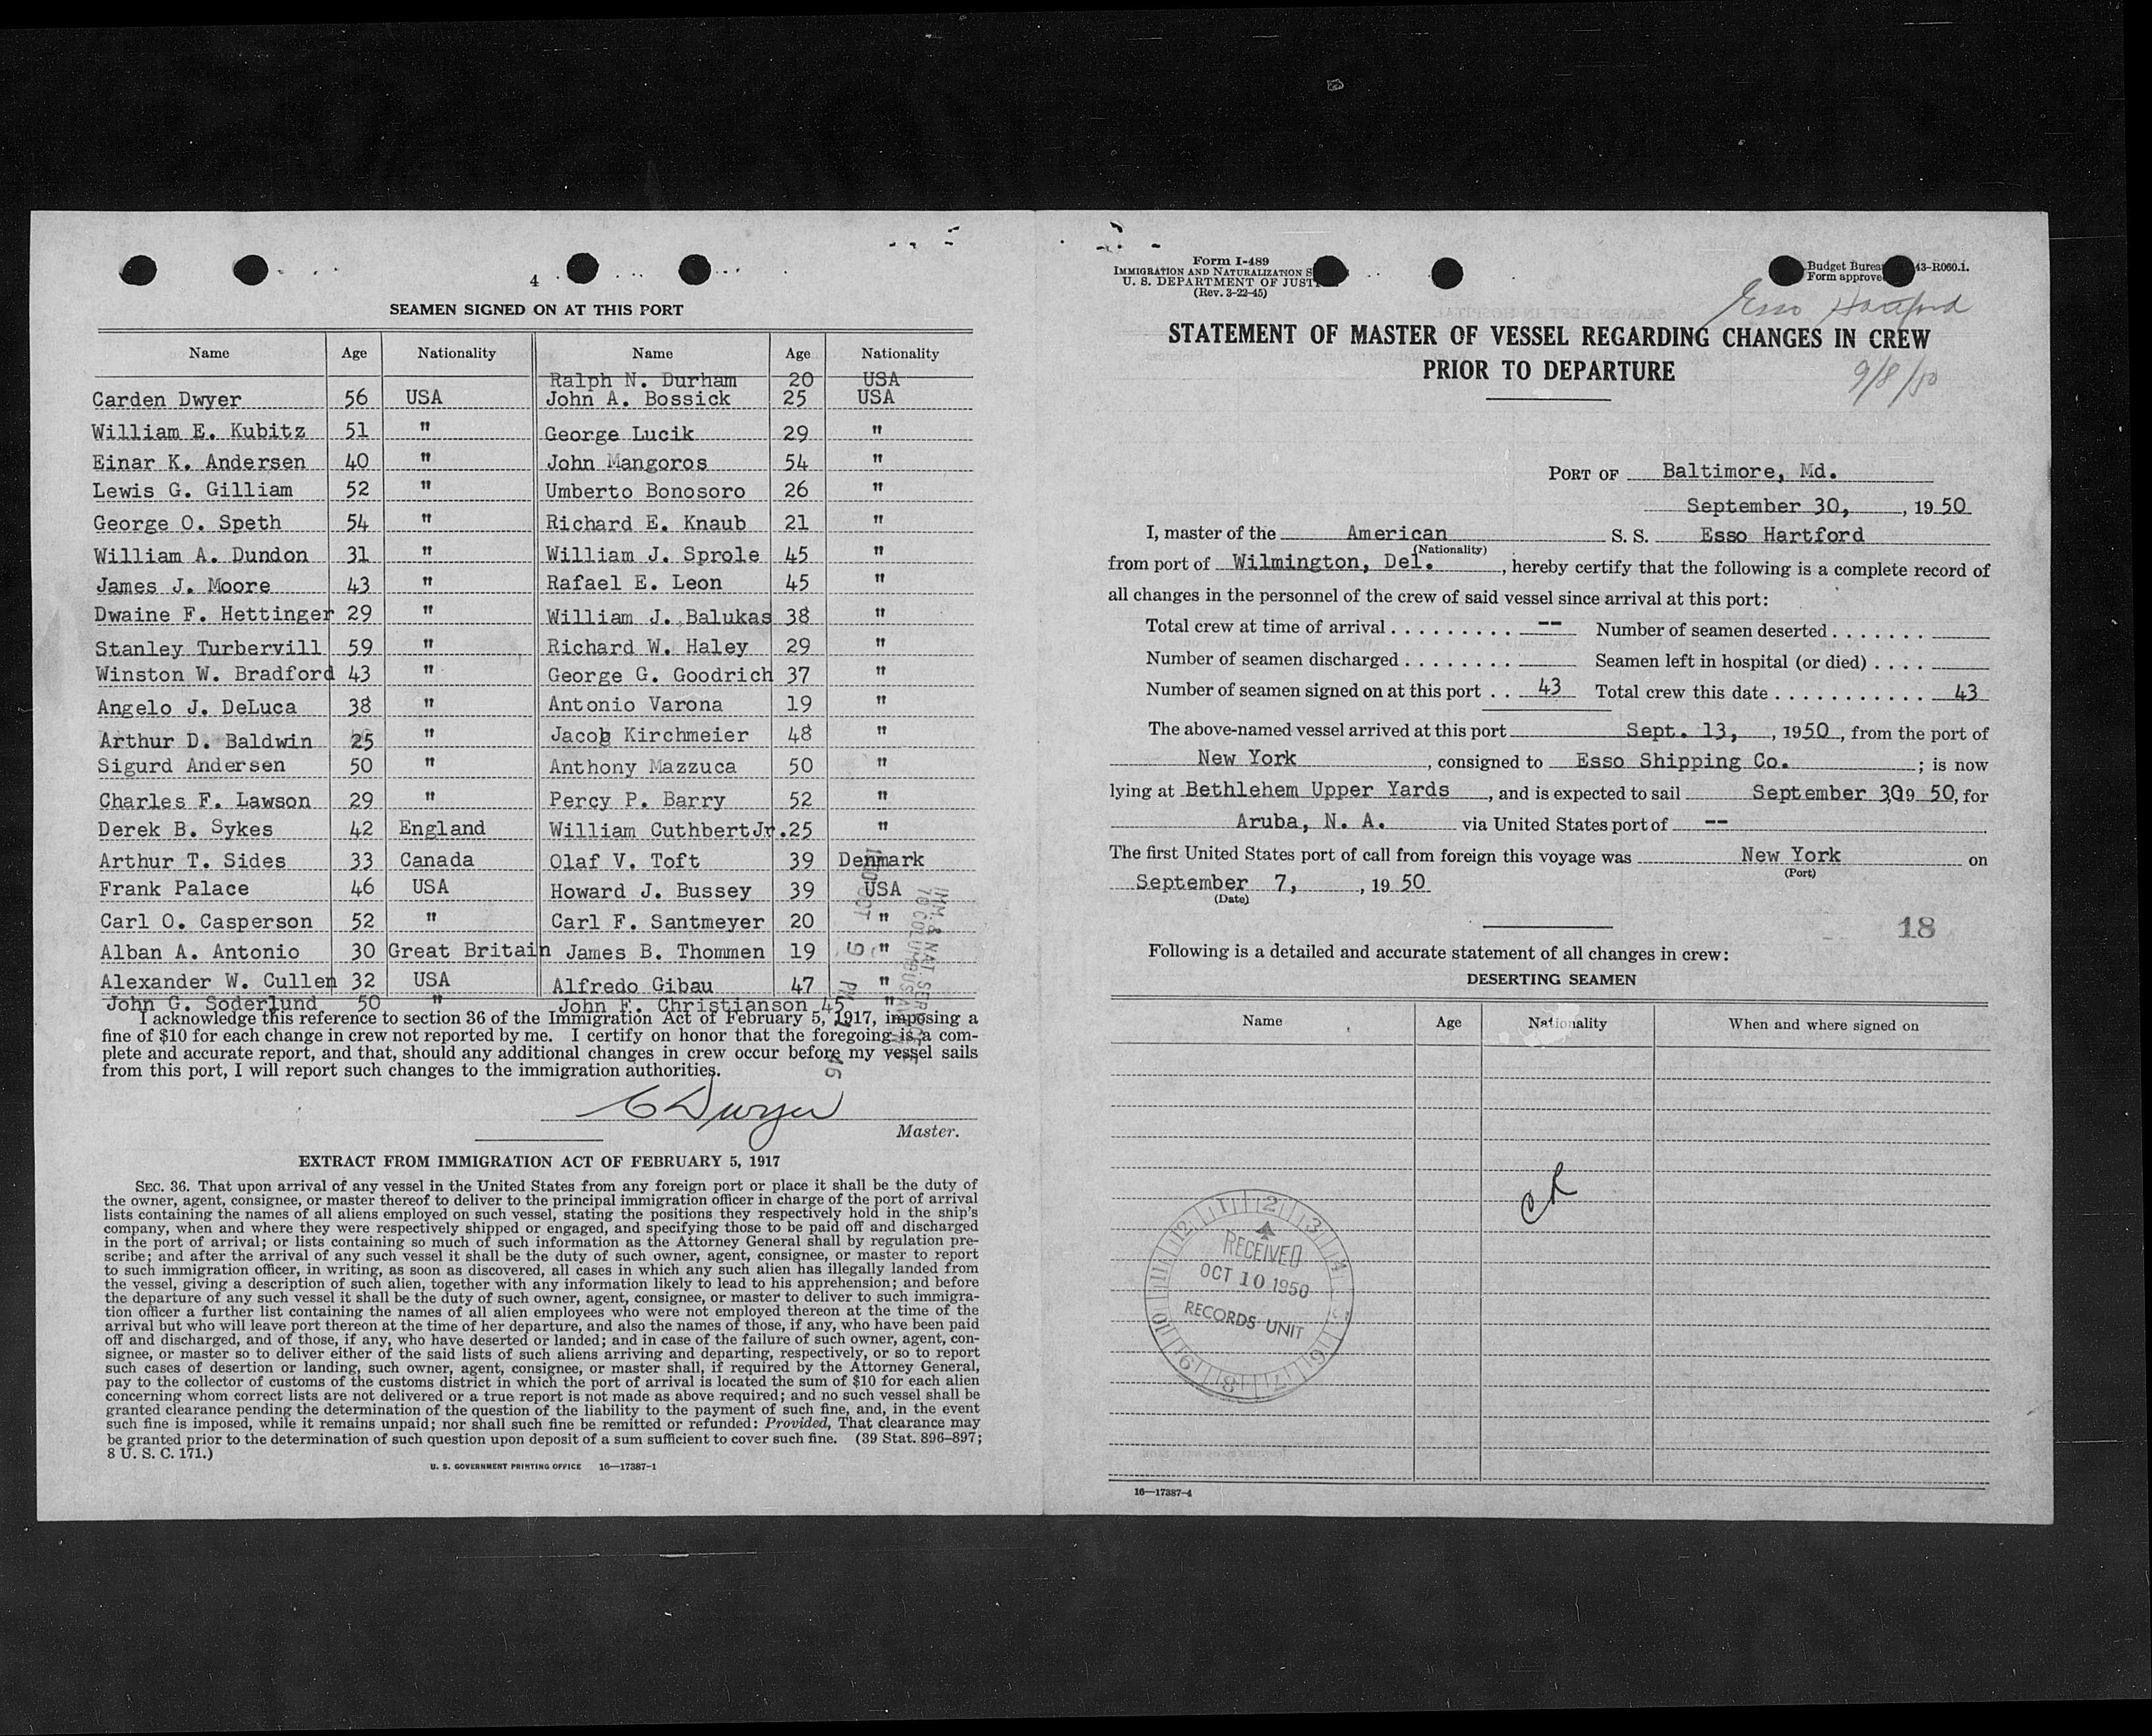 4
SEAMEN SIGNED ON AT THIS PORT
Name Age Nationality Name Age Nationality
Ralph N. Durham 20 USA
Carden Dwyer 56 USA John A. Bossick 25 USA
William E. Kubitz 51 " George Lucik 29 "
Einar K. Andersen 40 " John Mangoros 54 "
Lewis G. Gilliam 52 " Umberto Bonosoro 26 "
George O. Speth 54 " Richard E. Knaub 21 "
William A. Dundon 31 " William J. Sprole 45 "
James J. Moore 43 " Rafael E. Leon 45 "
Dwaine F. Hettinger 29 " William J. Balukas 38 "
Stanley Turbervill 59 " Richard W. Haley 29 "
Winston W. Bradford 43 " George G. Goodrich 37 "
Angelo J. DeLuca 38 " Antonio Varona 19 "
Arthur D. Baldwin 25 " Jacob Kirchmeier 48 "
Sigurd Andersen 50 " Anthony Mazzuca 50 "
Charles F. Lawson 29 " Percy P. Barry 52 "
Derek B. Sykes 42 England William Cuthbert Jr. 25 "
Arthur T. Sides 33 Canada Olaf V. Toft 39 Denmark
Frank Palace 46 USA Howard J. Bussey 39 USA
Carl O. Casperson 52 " Carl F. Santmeyer 20 "
Alban A. Antonio 30 Great Britain James B. Thommen 19 "
Alexander W. Cullen 32 USA Alfredo Gibau 47 "
John G. Soderlund 50 " John F. Christianson 45 "
I acknowledge this reference to section 36 of the Immigration Act of February 5, 1917, imposing a
fine of $10 for each change in crew not reported by me. I certify on honor that the foregoing is a com-
plete and accurate report, and that, should any additional changes in crew occur before my vessel sails
from this port, I will report such changes to the immigration authorities.
C Dwyer
Master.
EXTRACT FROM IMMIGRATION ACT OF FEBRUARY 5, 1917
SEC. 36. That upon arrival of any vessel in the United States from any foreign port or place it shall be the duty of
the owner, agent, consignee, or master thereof to deliver to the principal immigration officer in charge of the port of arrival
lists containing the names of all aliens employed on such vessel, stating the positions they respectively hold in the ship's
company, when and where they were respectively shipped or engaged, and specifying those to be paid off and discharged
in the port of arrival; or lists containing so much of such information as the Attorney General shall by regulation pre-
scribe; and after the arrival of any such vessel it shall be the duty of such owner, agent, consignee, or master to report
to such immigration officer, in writing, as soon as discovered, all cases in which any such alien has illegally landed from
the vessel, giving a description of such alien, together with any information likely to lead to his apprehension; and before
the departure of any such vessel it shall be the duty of such owner, agent, consignee, or master to deliver to such immigra-
tion officer a further list containing the names of all alien employees who were not employed thereon at the time of the
arrival but who will leave port thereon at the time of her departure, and also the names of those, if any, who have been paid
off and discharged, and of those, if any, who have deserted or landed; and in case of the failure of such owner, agent, con-
signee, or master so to deliver either of the said lists of such aliens arriving and departing, respectively, or so to report
such cases of desertion or landing, such owner, agent, consignee, or master shall, if required by the Attorney General,
pay to the collector of customs of the customs district in which the port of arrival is located the sum of $10 for each alien
concerning whom correct lists are not delivered or a true report is not made as above required; and no such vessel shall be
granted clearance pending the determination of the question of the liability to the payment of such fine, and, in the event
such fine is imposed, while it remains unpaid; nor shall such fine be remitted or refunded: Provided, That clearance may
be granted prior to the determination of such question upon deposit of a sum sufficient to cover such fine. (39 Stat. 896-897;
8 U. S. C. 171.)
U. S. GOVERNMENT PRINTING OFFICE 16—17387-1
Form I-489
IMMIGRATION AND NATURALIZATION S
U. S. DEPARTMENT OF JUST
(Rev. 3-22-45)
Budget Burea 43-R060.1.
Form approve
Esso Hartford
STATEMENT OF MASTER OF VESSEL REGARDING CHANGES IN CREW
PRIOR TO DEPARTURE
9/8/50
PORT OF Baltimore, Md.
September 30, , 1950
I, master of the American S. S. Esso Hartford
(Nationality)
from port of Wilmington, Del. , hereby certify that the following is a complete record of
all changes in the personnel of the crew of said vessel since arrival at this port:
Total crew at time of arrival . . . . . . . . . -- Number of seamen deserted . . . . . . .
Number of seamen discharged . . . . . . . . Seamen left in hospital (or died) . . . .
Number of seamen signed on at this port . . 43 Total crew this date . . . . . . . . . . . . 43
The above-named vessel arrived at this port Sept. 13, , 1950, from the port of
New York , consigned to Esso Shipping Co. ; is now
lying at Bethlehem Upper Yards , and is expected to sail September 30, 19 50, for
Aruba, N. A. via United States port of --
The first United States port of call from foreign this voyage was New York on
(Port)
September 7, , 19 50
(Date)
18
Following is a detailed and accurate statement of all changes in crew:
DESERTING SEAMEN
Name Age Nationality When and where signed on
RECEIVED
OCT 10 1950
RECORDS UNIT
16—17387-4